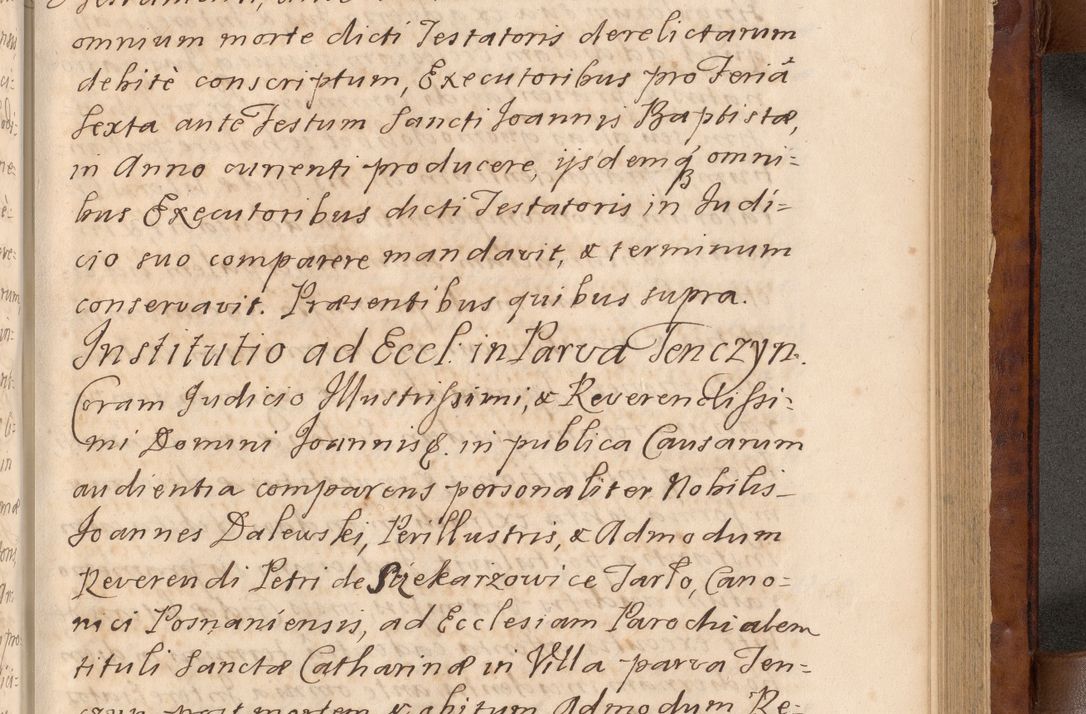 omnium morte dicti Testatoris derelictarum
debitè conscriptum, Executoribus pro Feriâ
Sexta ante Festum Sancti Joannis Baptistæ,
in Anno currenti producere, ijsdemq́ omni=
bus Executoribus dicti Testatoris in Judi=
cio suo comparere mandavit, & terminum
conservavit. Præsentibus quibus supra.
Institutio ad Eccl. in Parva Tenczyn.
Coram Judicio Illustrissimi, & Reverendissi=
mi Domini Joannis &. in publica Causarum
audientia comparens personaliter Nobilis
Joannes Dalewski, Perillustris, & Admodum
Reverendi Petri de Szekarzowice Tarło, Cano=
nici Posnaniensis, ad Ecclesiam Parochialem
tituli Sanctæ Catharinæ in Villa parva Ten=
czyn post mortem & obitum Admodum Re=